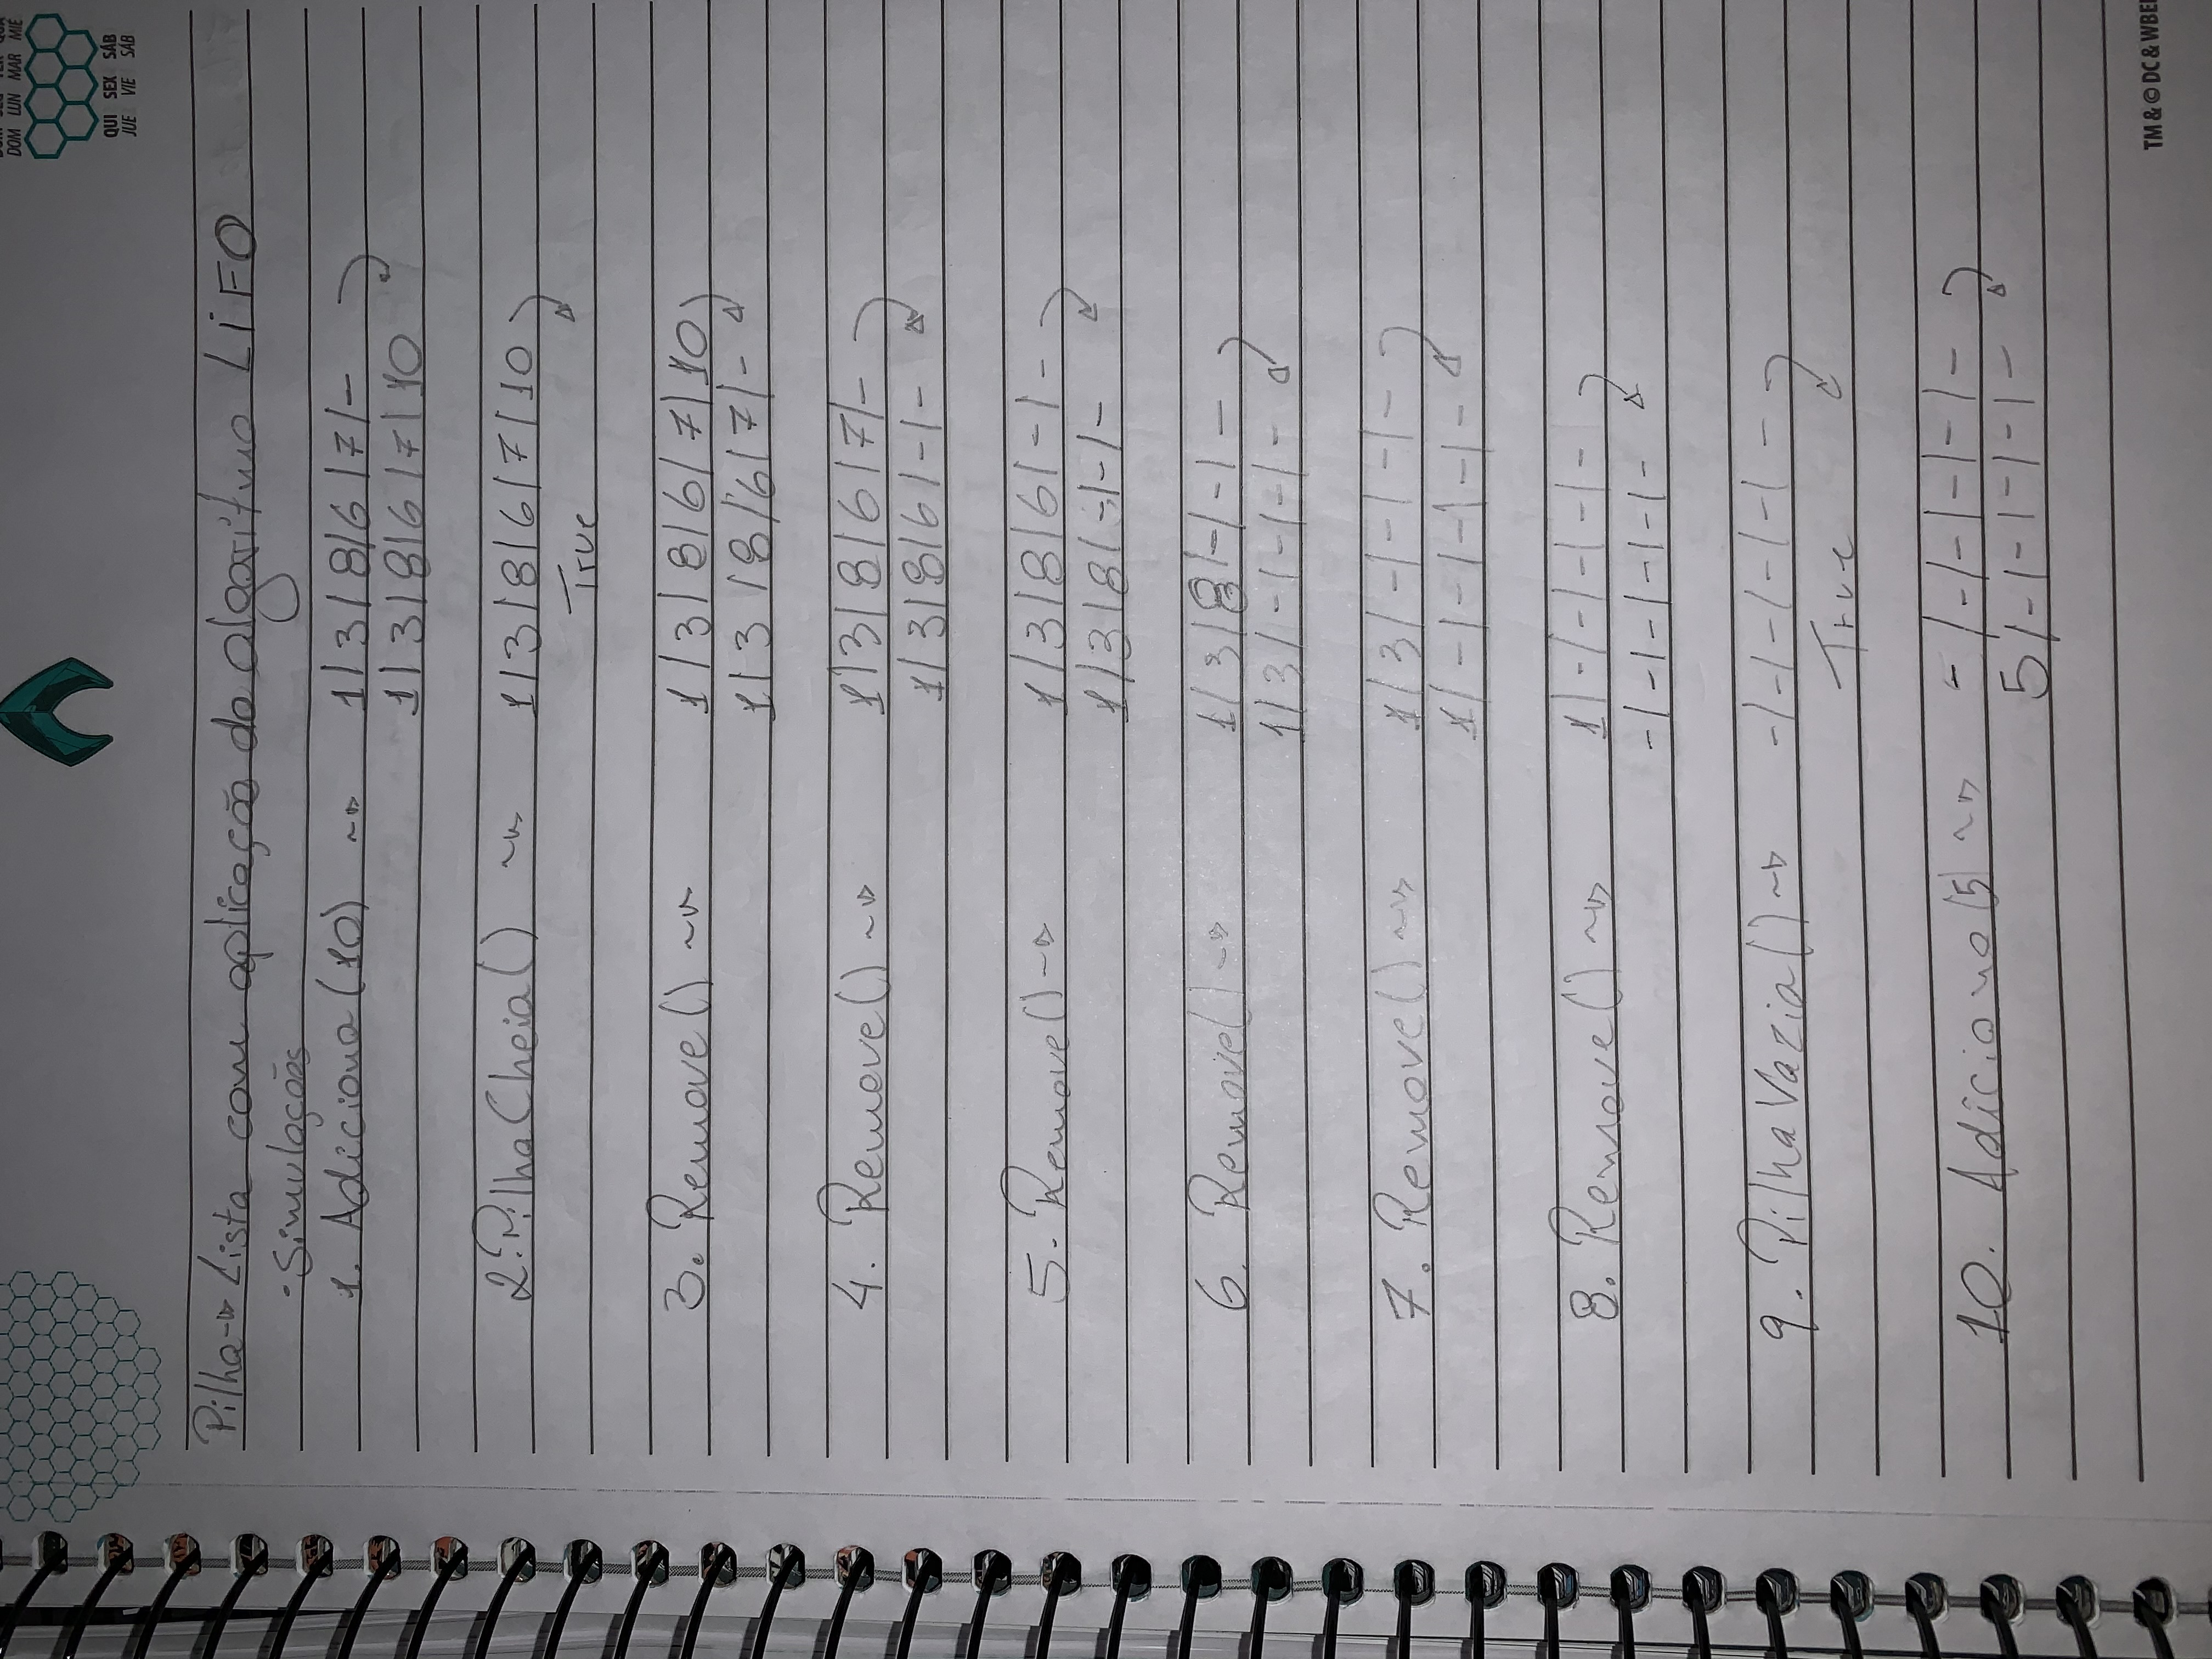 DOM LUN MAR MIÉ
QUI SEX SÁB
JUE VIE SÁB
Pilha → Lista com aplicação do algorítmo LiFO
· Simulações
1. Adiciona (10) ~> 1 | 3 | 8 | 6 | 7 | -
1 | 3 | 8 | 6 | 7 | 10
2. PilhaCheia () ~> 1 | 3 | 8 | 6 | 7 | 10
True
3. Remove () ~> 1 | 3 | 8 | 6 | 7 | 10
1 | 3 | 8 | 6 | 7 | -
4. Remove () ~> 1 | 3 | 8 | 6 | 7 | -
1 | 3 | 8 | 6 | - | -
5. Remove () ~> 1 | 3 | 8 | 6 | - | -
1 | 3 | 8 | - | - | -
6. Remove () ~> 1 | 3 | 8 | - | - | -
1 | 3 | - | - | - | -
7. Remove () ~> 1 | 3 | - | - | - | -
1 | - | - | - | - | -
8. Remove () ~> 1 | - | - | - | - | -
- | - | - | - | - | -
9. PilhaVazia () ~> - | - | - | - | - | -
True
10. Adiciona (5) ~> - | - | - | - | - | -
5 | - | - | - | - | -
TM & © DC & WBEI